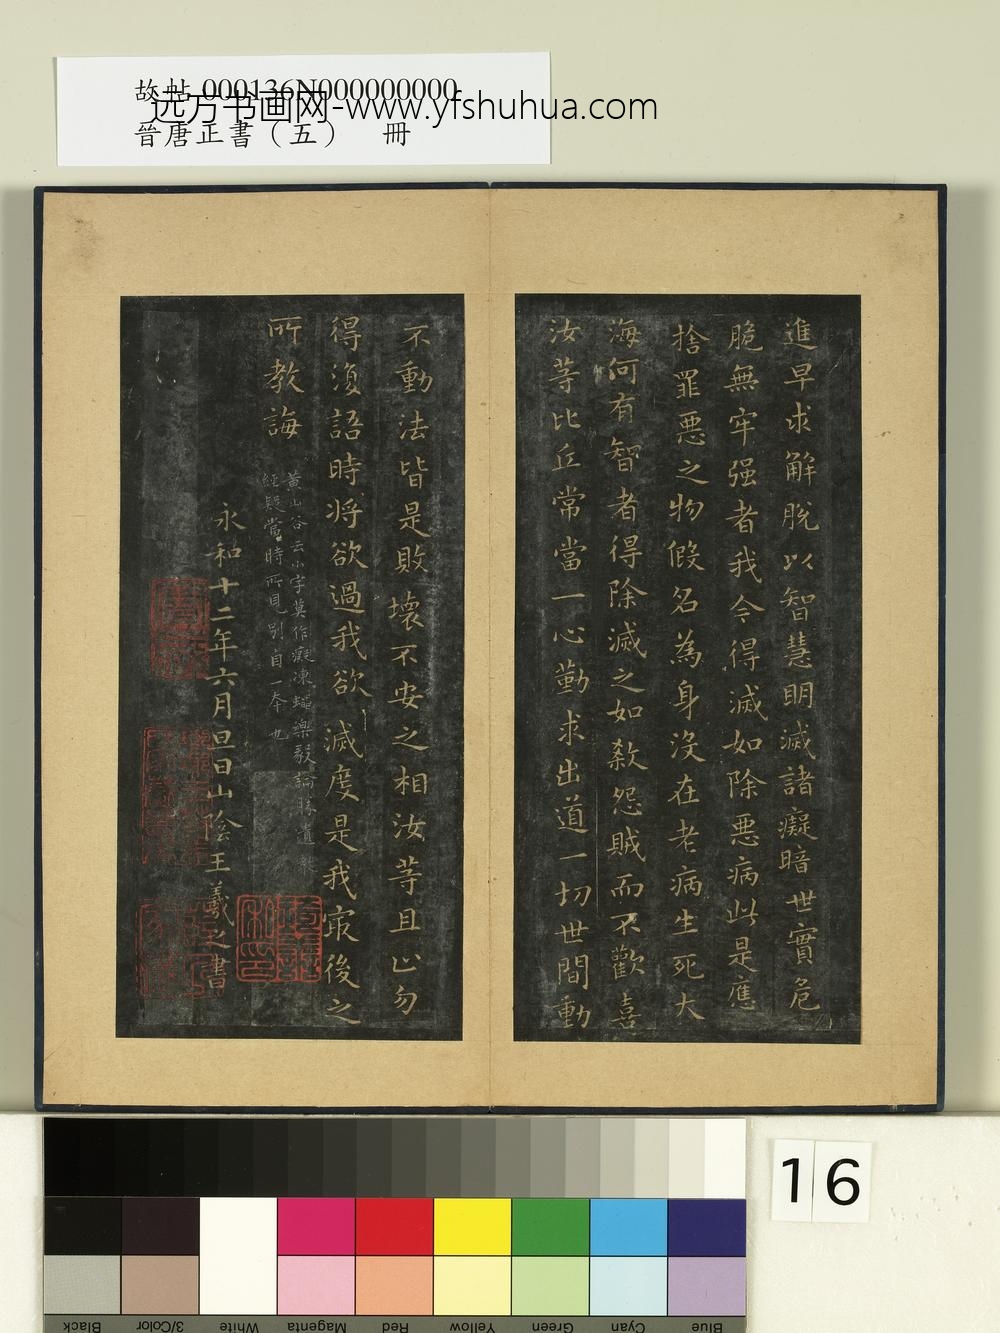 故帖 000136N000000000
远方书画网-www.yfshuhua.com
晉唐正書（五） 冊
進早求解脫以智慧明滅諸癡暗世實危
脆無牢强者我今得滅如除惡病此是應
捨罪惡之物假名為身没在老病生死大
海何有智者得除滅之如殺怨賊而不歡喜
汝等比丘常當一心勤求出道一切世間動
不動法皆是敗壞不安之相汝等且止勿
得復語時將欲過我欲滅度是我㝡後之
所教誨
黄山谷云小字莫作癡凍蠅樂毅論勝遺教
經疑當時所見別自一本也
永和十二年六月旦日山陰王羲之書
16
Black
3/Color
White
Magenta
Red
Yellow
Green
Cyan
Blue